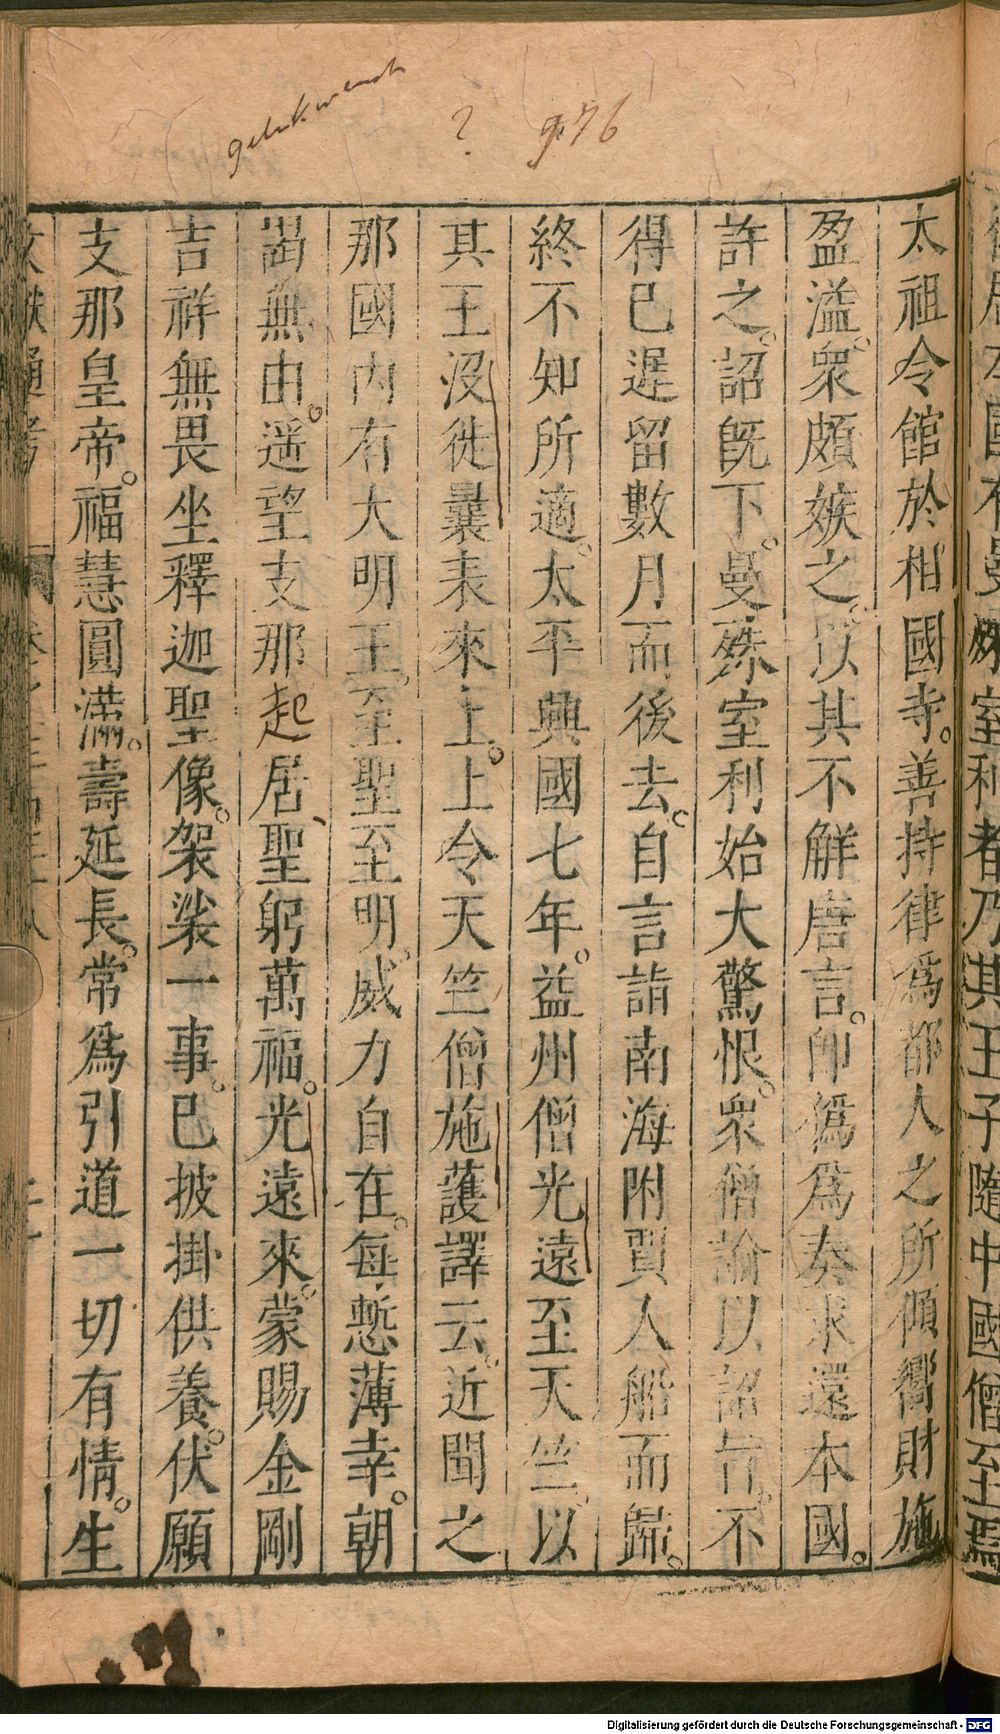 ? 976
太祖令館於相國寺。善持律為都人之所傾嚮財施
盈溢。衆頗嫉之。以其不解唐言。即偽為奏求還本國。
許之。詔旣下。曼殊室利始大驚恨。衆僧諭以詔旨。不
得已遲留數月而後去。自言詣南海附賈人船而歸。
終不知所適。太平興國七年。益州僧光遠至天竺。以
其王沒徙曩表來上。上令天竺僧施護譯云。近聞之
那國內有大明王。至聖至明。威力自在。每慙薄幸。朝
謁無由。遥望支那起居、聖躬萬福。光遠來。蒙賜金剛
吉祥無畏坐釋迦聖像。袈裟一事。已披掛供養。伏願
支那皇帝。福慧圓滿。壽延長。常為引道一切有情。生
Digitalisierung gefördert durch die Deutsche Forschungsgemeinschaft - DFG